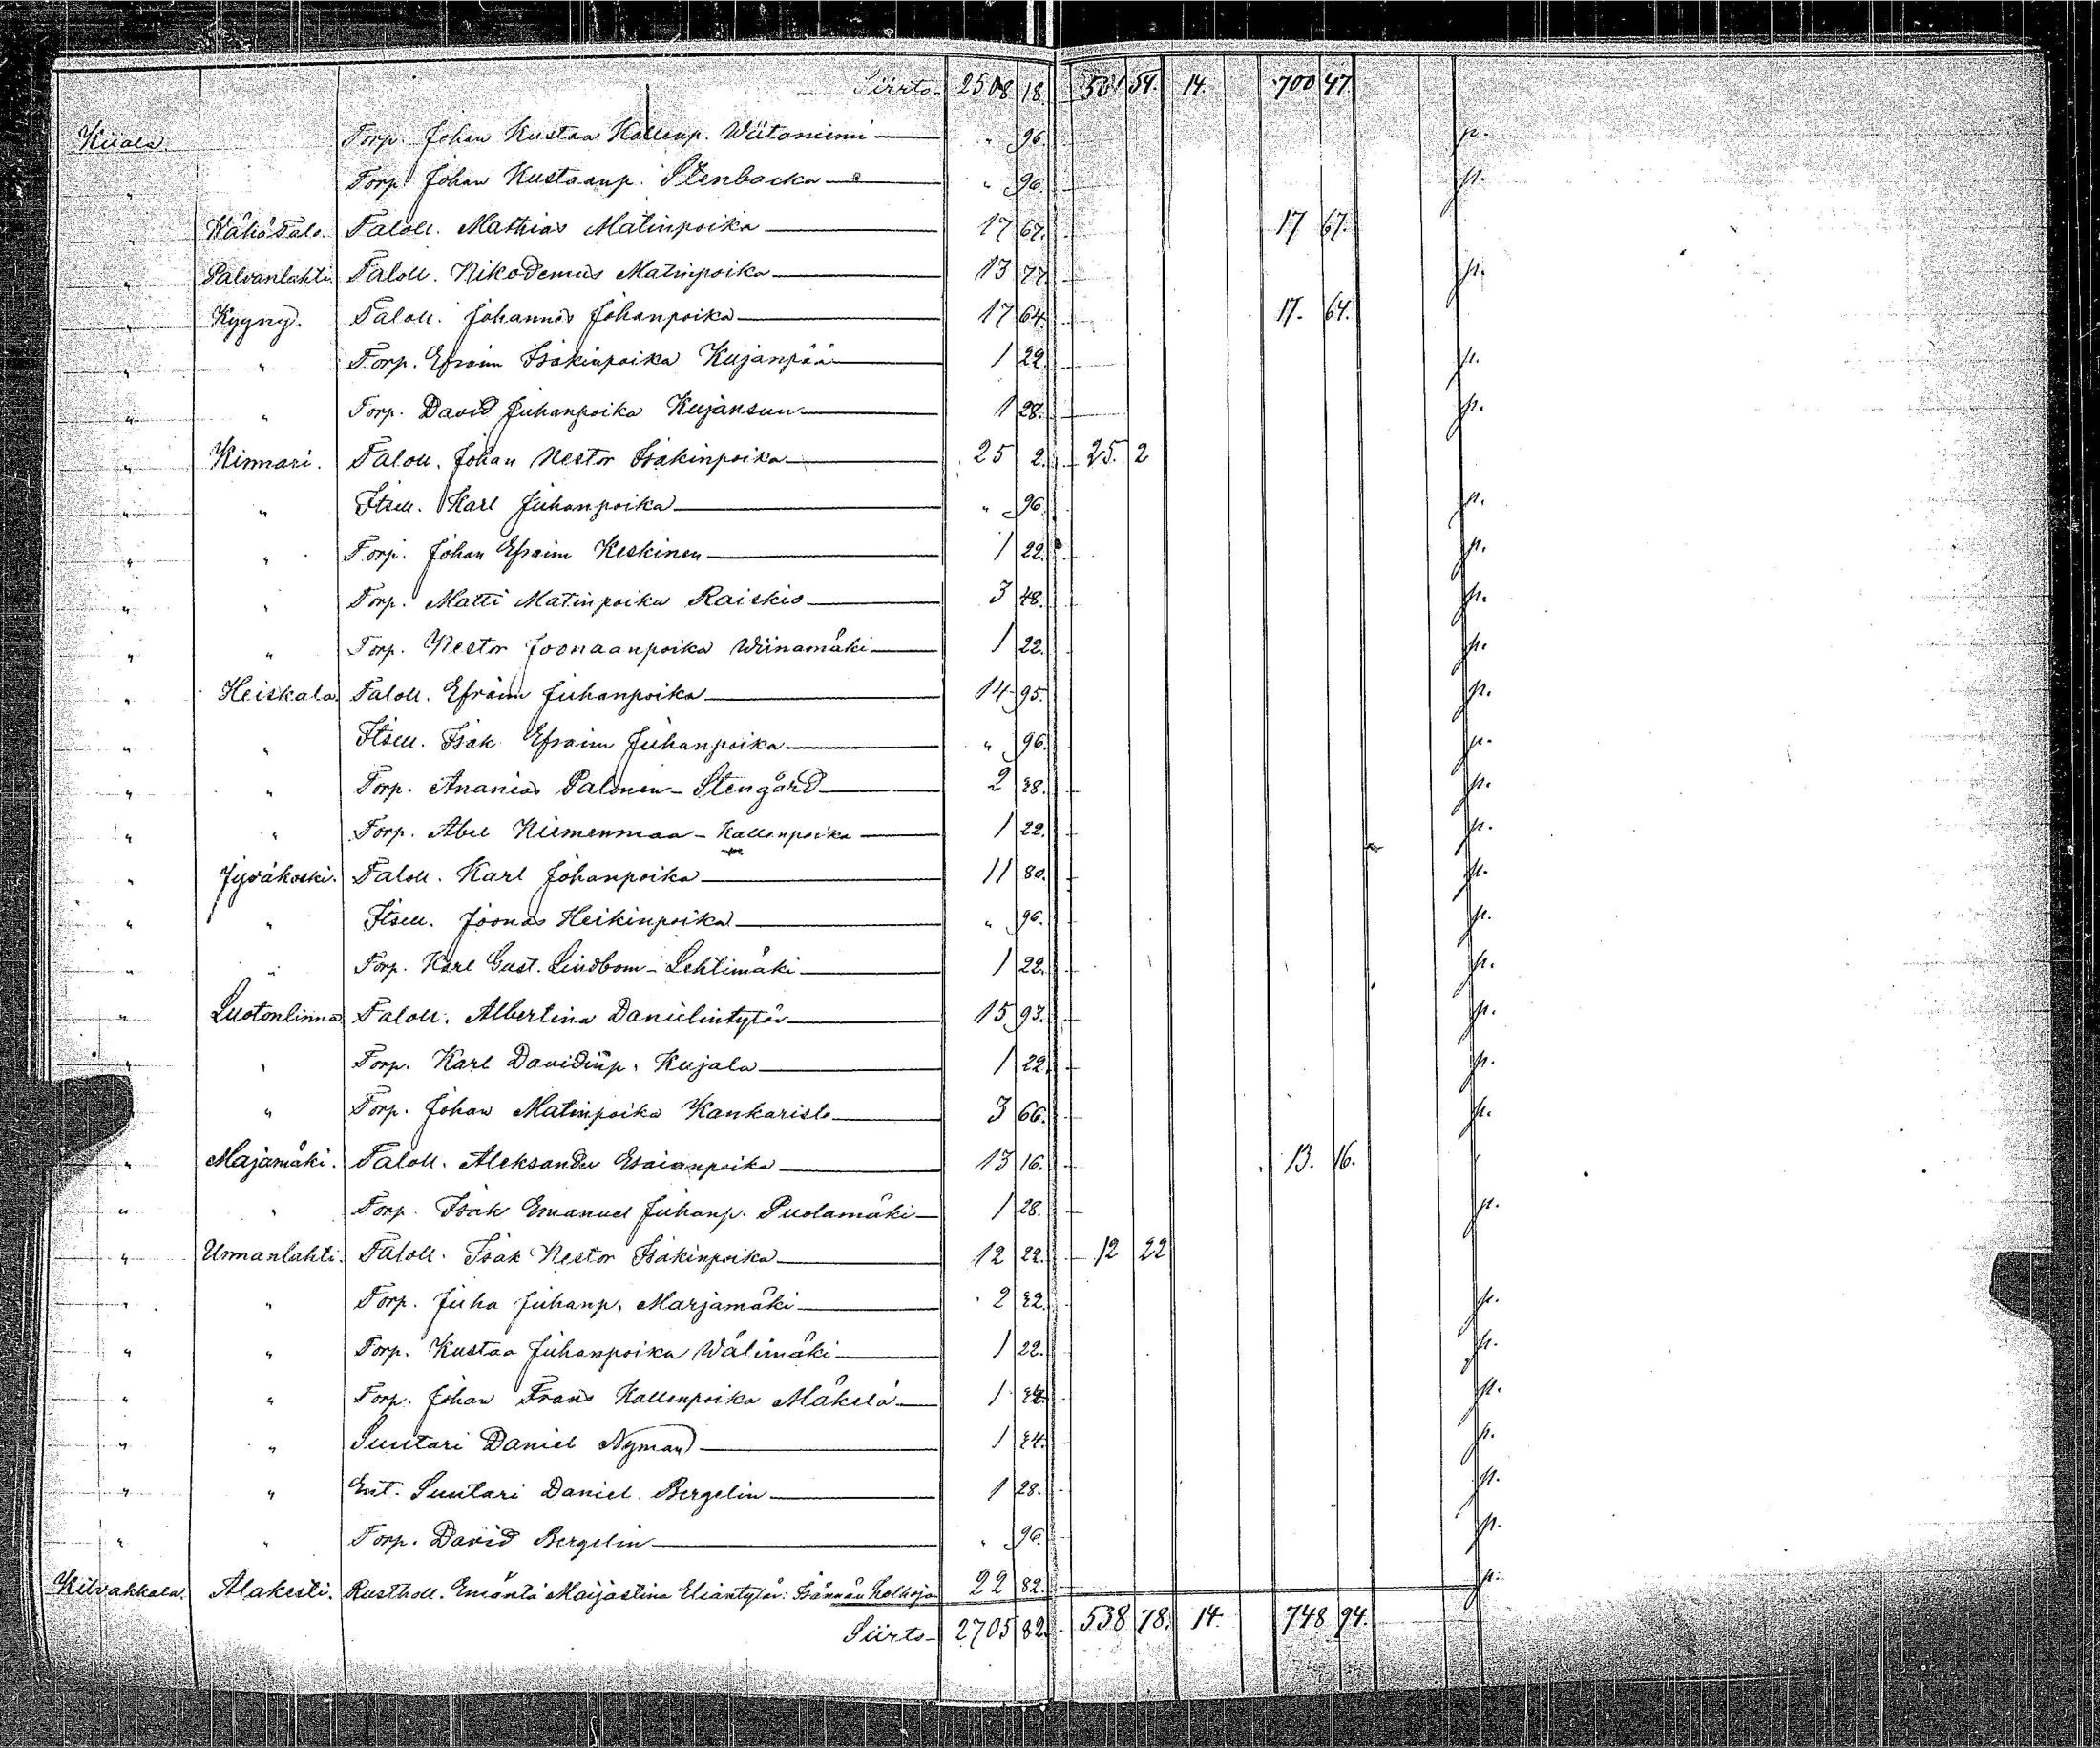 Siirto - 2508 18. 501 54. 14. 700 47.
Kiiala Torp. Johan Kustaa Kallenp. Wiitaniemi " 96. p.
" Torp. Johan Kustaanp. Stenbacka " 96. p.
" Kähö Talo. Taloll. Mathias Matinpoika 17 67. 17 67.
" Palvanlahti. Taloll. Nikodemus Matinpoika 13 77. p.
" Kyyny. Taloll. Johannes Johanpoika 17 64. 17. 64.
" " Torp. Efraim Isakinpoika Kujanpää 1 22. p.
" " Torp. David Juhanpoika Kujansuu 1 28. p.
" Kinnari. Taloll. Johan Nestor Isakinpoika 25 2. 25. 2
" " Itsell. Karl Juhanpoika " 96. p.
" " Torp. Johan Efraim Keskinen 1 22. p.
" " Torp. Matti Matinpoika Raiskio 3 48. p.
" " Torp. Nestor Joonaanpoika Wiinamäki 1 22. p.
" Heiskala. Taloll. Efraim Juhanpoika 14 95. p.
" " Itsell. Isak Efraim Juhanpoika " 96. p.
" " Torp. Ananias Palonen - Stengård 2 28. p.
" " Torp. Abel Niemenmaa - Kallenpoika 1 22. p.
" Jyväkoski. Taloll. Karl Johanpoika 11 80. p.
" " Itsell. Joonas Heikinpoika " 96. p.
" " Torp. Karl Gust. Lindbom - Lehtimäki 1 22. p.
" Luotonlinna Taloll. Albertina Danielintytär 15 93. p.
" " Torp. Karl Davidinp. Kujala 1 22. p.
" Torp. Johan Matinpoika Kankaristo 3 66. p.
" Majamäki. Taloll. Aleksander Esaianpoika 13 16. 13. 16.
" " Torp. Isak Emanuel Juhanp. Puolamäki 1 28. p.
" Unnanlahti. Taloll. Isak Nestor Isakinpoika 12 22. 12 22
" " Torp. Juha Juhanp. Marjamäki 2 22. p.
" " Torp. Kustaa Juhanpoika Wälimäki 1 22. p.
" " Torp. Johan Frans Kallenpoika Mäkelä 1 p.
" " Suutari Daniel Nyman 1 24. p.
" " Ent. Suutari Daniel Bergelin 1 28. p.
" " Torp. David Bergelin " 96. p.
Kilvakkala. Alakesti. Rustholl. Emäntä Maijastina Eliantytär: Isännän holhoja 22 82. p.
Siirto - 2705 82. 538 78. 14. 748 94.